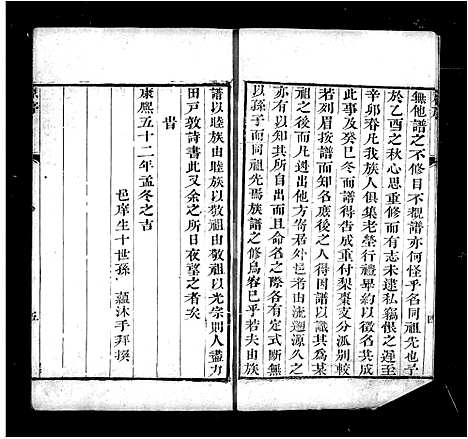 無他譜之不修目不覩譜亦何怪乎名同祖先也予
於乙酉之秋心思重修而有志未逮私竊恨之遲至
辛卯春凡我族人俱集老塋行禮畢約以徵名共成
此事及癸巳冬而譜得告成重付梨棗支分派別較
若列眉按譜而知名應後之人得因譜以識其為某
祖之後也而凡遷出他方寄居外邑者由流遡源久之
亦有以知其所自出而且命名之際各有定式斷無
以孫子而同祖先焉族譜之修烏容已乎若夫由族
譜以睦族由睦族以敬祖由敬祖以光宗則人盡力
田戸敦詩書此又余之所日夜望之者矣
旹
康熙五十二年孟冬之吉
邑庠生十世孫 沐手拜撰
四
五